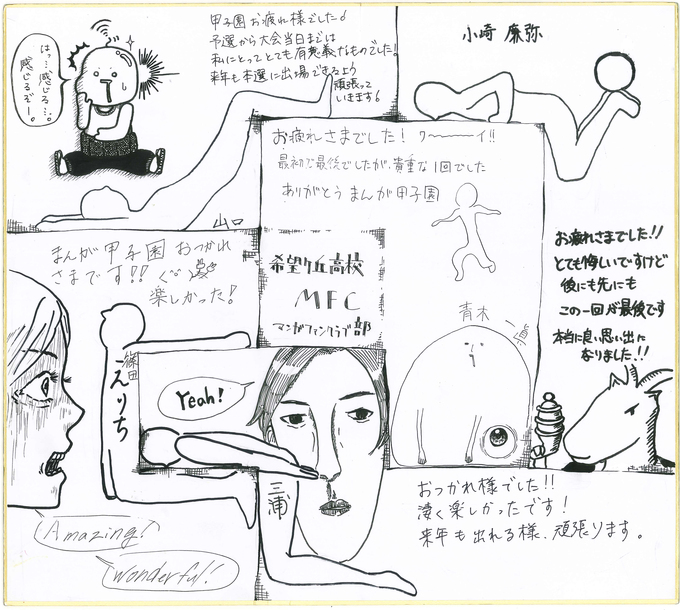 甲子園お疲れ様でした!
予選から大会当日までは
私にとってとても有意義なものでした!
来年も本選に出場できるよう
頑張って
いきます!
はっ…感じる…。
感じるぞー。
山口
小崎 廉弥
お疲れさまでした! ワ〜〜イ!!
最初で最後でしたが、貴重な1回でした
ありがとう まんが甲子園
まんが甲子園 おつかれ
さまです!!
楽しかった!
希望ケ丘高校
MFC
マンガファンクラブ部
青木
お疲れさまでした!!
とても悔しいですけど
後にも先にも
この一回が最後です
本当に良い思い出に
なりました!!
篠田
えりち
Yeah!
三浦
おつかれ様でした!!
凄く楽しかったです!
来年も出れる様、頑張ります。
Amazing!
Wonderful!